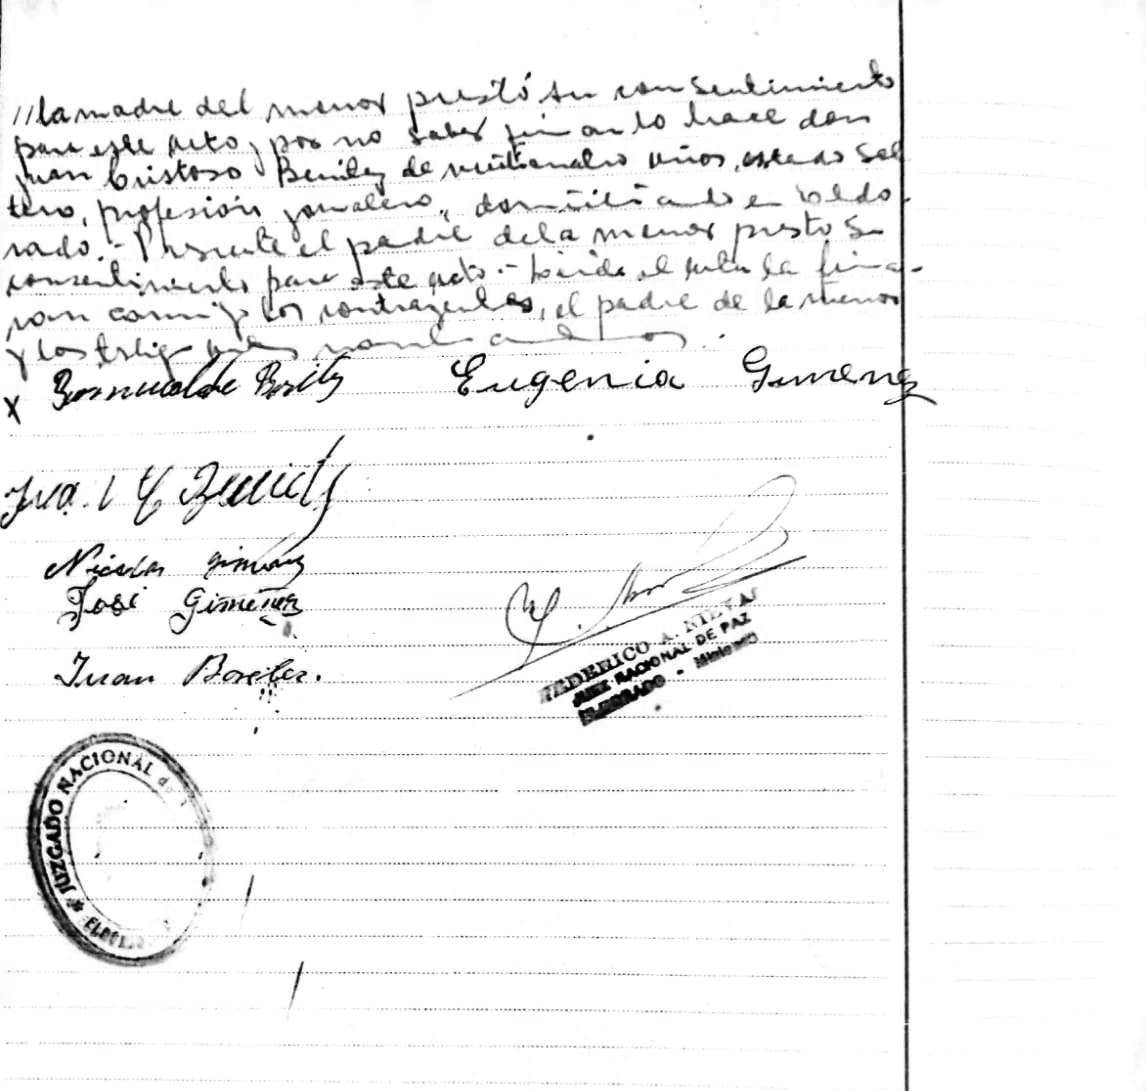 //la madre del menor prestó su consentimiento
para este acto, por no saber firmar lo hace don
Juan Cristoso Benitez de veinticuatro años, estado sol
tero, profesión jornalero, domiciliado en Eldo-
rado.- Presente el padre de la menor presto su
consentimiento para este acto.- Leida el acta la firma-
ron conmigo los contrayentes, el padre de la menor
y los testigos
x Romualdo Benitez Eugenia Gimenez
Juan Benitez
Nicolas Gimenez
José Gimenez
FEDERICO A. NIEVAS
JUEZ NACIONAL DE PAZ
ELDORADO - Misiones
Juan
JUZGADO NACIONAL de
ELDORADO